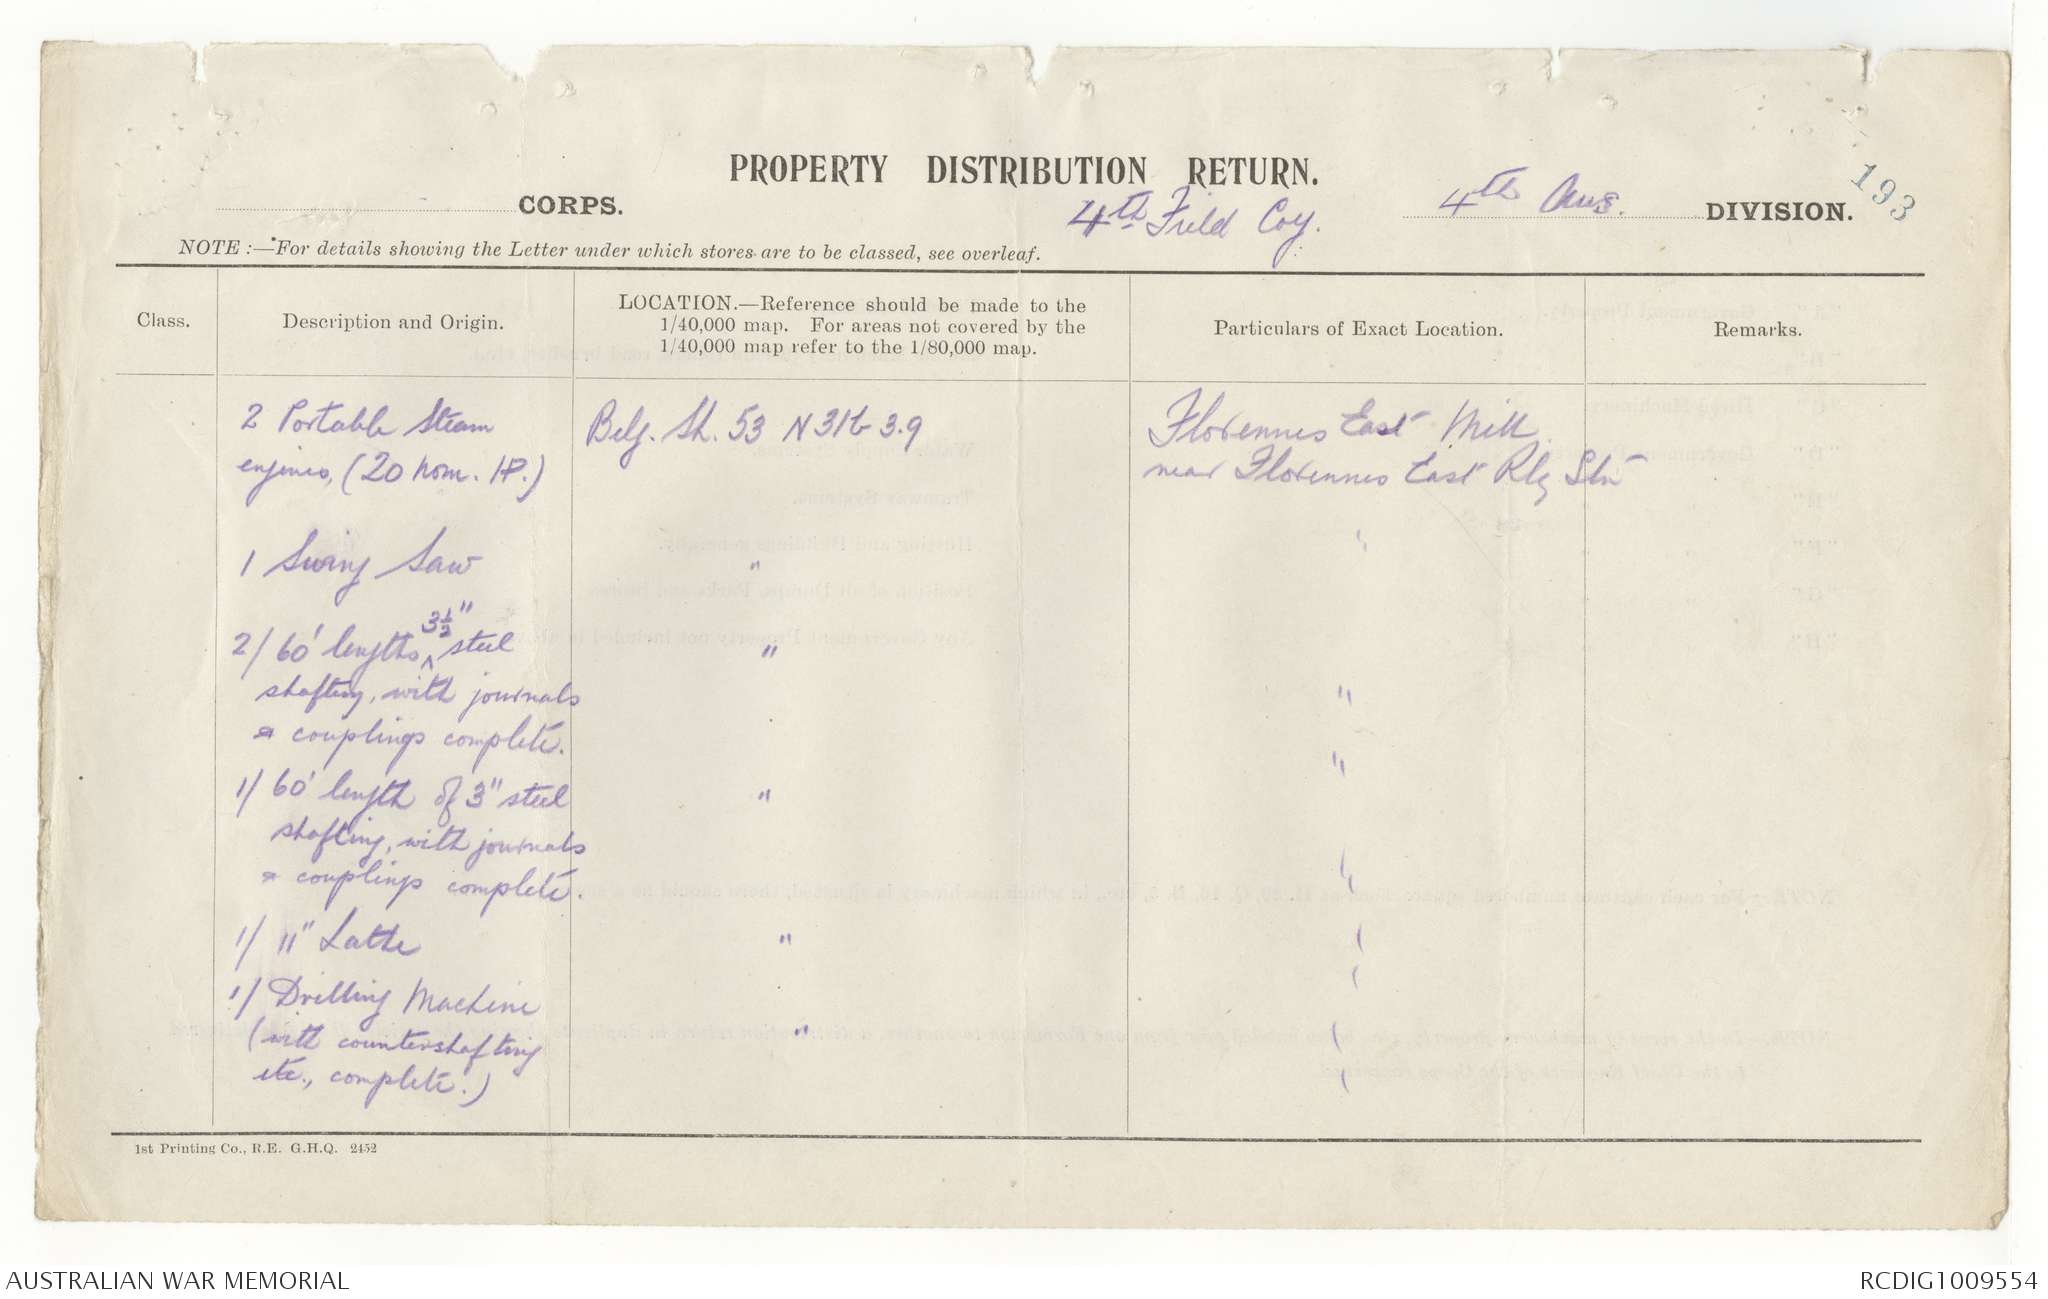 193
PROPERTY DISTRIBUTION RETURN.
CORPS. 4th Field Coy. 4th Aus. DIVISION.
NOTE :—For details showing the Letter under which stores are to be classed, see overleaf.
Class.
Description and Origin.
LOCATION.—Reference should be made to the
1/40,000 map. For areas not covered by the
1/40,000 map refer to the 1/80,000 map.
Particulars of Exact Location.
Remarks.
2 Portable Steam Belg. Sh. 53 N 31b 3.9 Florennes East Mill
engines, (20 nom. HP.) near Florennes East Rly Stn
1 Swing Saw " "
2/ 60' lengths 3½" steel "
shafting, with journals "
& couplings complete. "
1/ 60' length of 3" steel "
shafting, with journals
& couplings complete. "
1/ 11" Lathe " "
1/ Drilling Machine
(with countershafting "
etc., complete.)
1st Printing Co., R.E. G.H.Q. 2452
AUSTRALIAN WAR MEMORIAL
RCDIG1009554